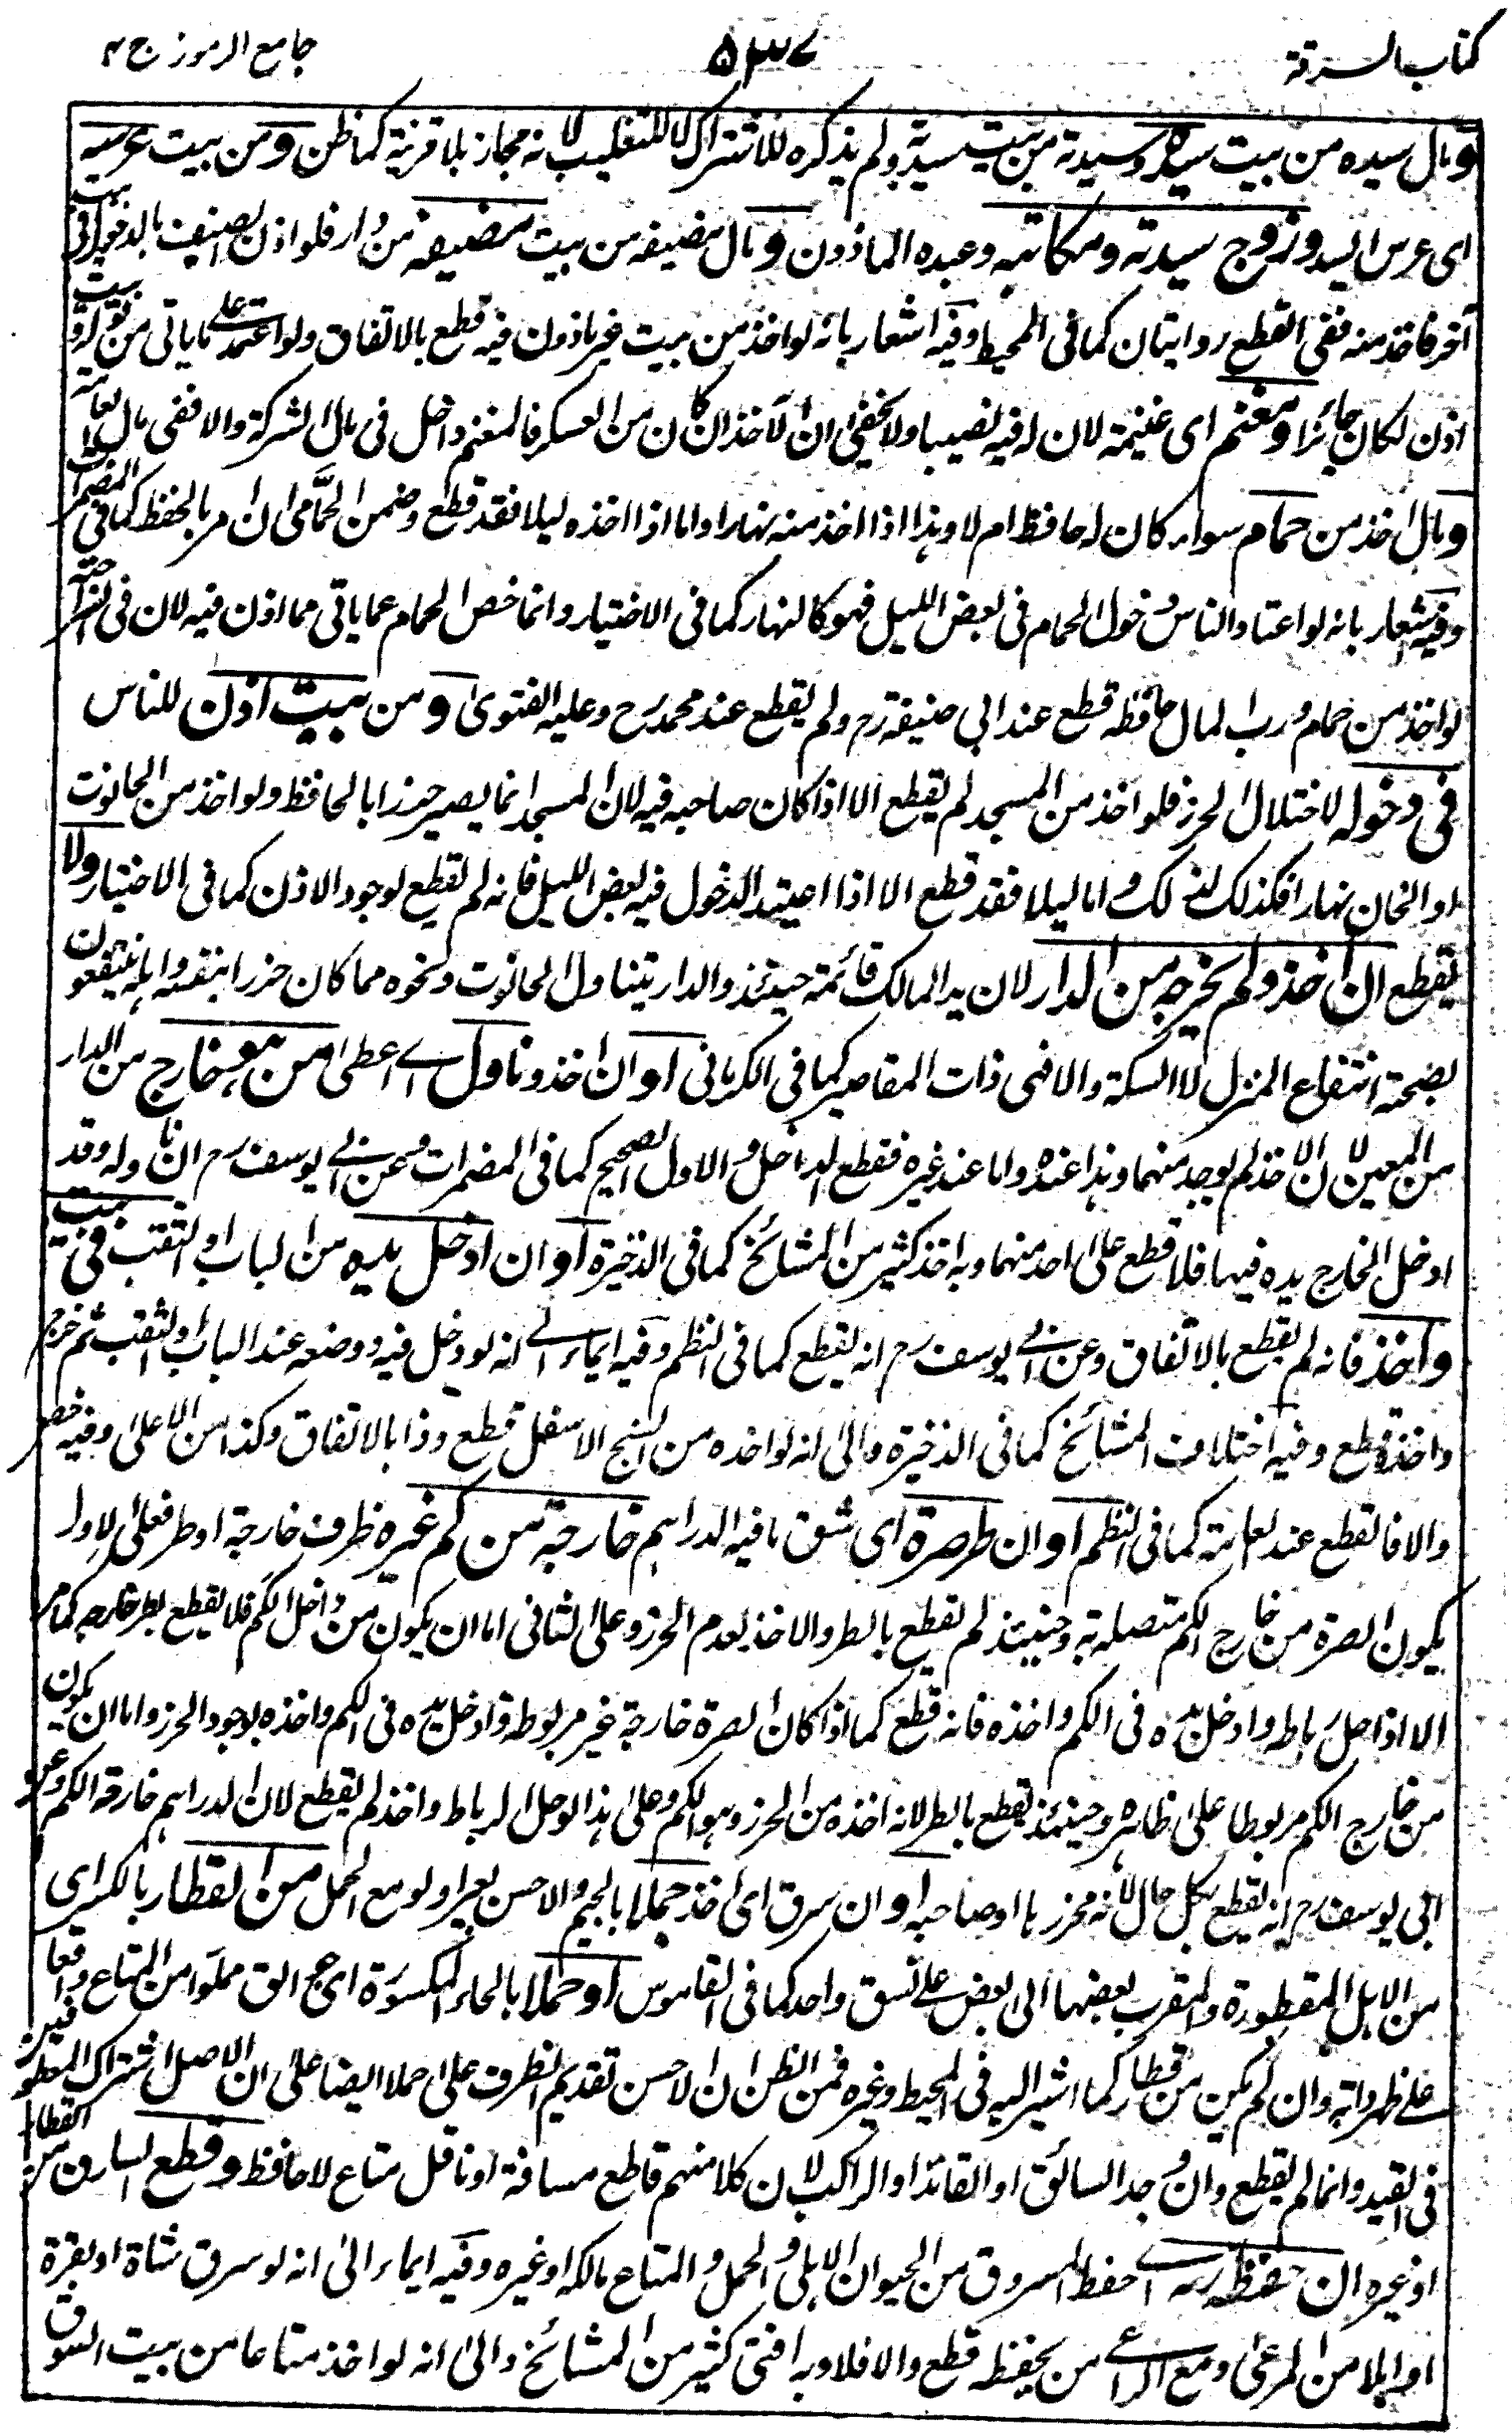 كتاب السرقة ٥٣٧ جامع الرموز ج ٢
و مال سيده من بيت سيده وسيدته من بيت سيدته ولم يذكره للاشتراك لا للتغليب لانه مجاز بلا قرينة كما ظن و من بيت عرسه
اى عرس السيد و زوج سيدته و مكاتبه وعبده الماذون و مال مضيفه من بيت مضيفه من دار فلو اذن الضيف بالدخول فى بيت
آخر فاخذ منه ففى القطع روايتان كما فى المحيط وفيه اشعار بانه لو اخذ من بيت غير ماذون فيه قطع بالاتفاق ولو اعتمد على ما ياتى من قوله او بيت
اذن لكان جائزا و مغنم اى غنيمة لان له فيه نصيبا ولا يخفى ان الآخذ ان كان من العسكر فالمغنم داخل فى مال الشركة والا ففى مال العامة
و مال اخذ من حمام سواء كان له حافظ ام لا وهذا اذا اخذ منه نهارا واما اذا اخذه ليلا فقد قطع وضمن الحمّامى ان امر بالحفظ كما فى المضمرات
وفيه اشعار بانه لو اعتاد الناس دخول الحمام فى بعض الليل فهو كالنهار كما فى الاختيار وانما خص الحمام عما ياتى مما اذن فيه لان فى
لو اخذ من حمام ورب المال حافظه قطع عند ابى حنيفة رح ولم يقطع عند محمد رح وعليه الفتوى و من بيت اذن للناس
فى دخوله لاختلال الحرز فلو اخذ من المسجد لم يقطع الا اذا كان صاحبه فيه لان المسجد انما يصير حرزا بالحافظ ولو اخذ من الحانوت
او الخان نهارا فكذلك لذلك واما ليلا فقد قطع الا اذا اعتيد الدخول فيه بعض الليل فانه لم يقطع لوجود الاذن كما فى الاختيار ولا
يقطع ان اخذ ولم يخرجه من الدار لان يد المالك قائمة حينئذ والدار يتناول الحانوت ونحوه مما كان حرزا بنفسه واهله ينتفعون
بصحنه انتفاع المنزل لا السكة والا فهى ذات المقاصير كما فى الكرمانى او ان اخذ وناول اى اعطى من هو خارج من الدار
من المعين لان الاخذ لم يوجد منهما وهذا عنده واما عند غيره فقطع الداخل والاول الصحيح كما فى المضمرات وعن ابى يوسف رح ان ناوله وقد
ادخل الخارج يده فيها فلا قطع على احد منهما وبه اخذ كثير من المشائخ كما فى الذخيرة او ان ادخل يده من الباب او النقب فى بيت
واخذ فانه لم يقطع بالاتفاق وعن ابى يوسف رح انه يقطع كما فى النظم وفيه ايماء الى انه لو دخل فيه ووضعه عند الباب او النقب ثم خرج
واخذ قطع وفيه اختلاف المشائخ كما فى الذخيرة والى انه لو اخذه من الاسفل قطع وذا بالاتفاق وكذا من الاعلى وفيه
والا فالقطع عند العامة كما فى النظم او ان طر صرة اى شق ما فيه الدراهم خارجة من كم غيره ظرف خارجة او طر فعلى الاول
يكون الصرة من خارج الكم متصلة به وحينئذ لم يقطع بالطر والاخذ لعدم الحرز وعلى الثانى اما ان يكون من داخل الكم فلا يقطع بطر خارجه كما مر
الا اذا حل رباطه وادخل يده فى الكم واخذه فانه قطع كما اذا كان الصرة خارجة غير مربوطة وادخل يده فى الكم واخذه لوجود الحرز واما ان يكون
من خارج الكم مربوطا على ظاهره وحينئذ يقطع بالطر لانه اخذه من الحرز وهو الكم وعلى هذا لو حل الرباط واخذ لم يقطع لان الدراهم خارجة الكم وعن
ابى يوسف رح انه يقطع بكل حال لانه محرز بها او صاحبه او ان سرق اى اخذ جملا بالجيم والاحسن بعيرا ولو مع الحمل من القطار بالكسر اى
من الابل المقطورة والمقرب بعضها الى بعض على نسق واحد كما فى القاموس او حملا بالحاء المكسورة اى جوالق مملوا من المتاع واقعا
على ظهر دابة وان لم يكن من قطار كما اشير اليه فى المحيط وغيره فمن الظن ان الاحسن تقديم الظرف على حملا ايضا على ان الاصل اشتراك المعطوفين
فى القيد وانما لم يقطع وان وجد السائق او القائد او الراكب لان كلا منهم قاطع مسافة او ناقل متاع لا حافظ و قطع السارق من القطار
او غيره ان حفظه ربه اى حفظ المسروق من الحيوان الابل والحمل والمتاع مالكه او غيره وفيه ايماء الى انه لو سرق شاة او بقرة
او ابلا من المرعى ومع الراعى من يحفظه قطع والا فلا وبه افتى كثير من المشائخ والى انه لو اخذ متاعا من بيت السوق